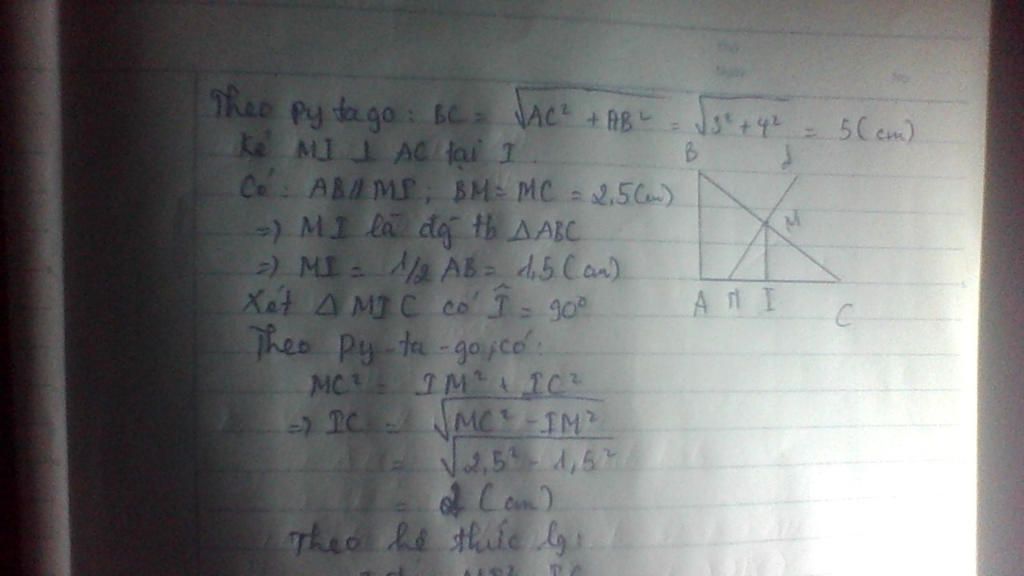 Theo Pytago: BC = √AC² + AB² = √3² + 4² = 5 (cm)
Kẻ MI ⊥ AC tại I
Có: AB // MI; BM = MC = 2,5 (cm)
=) MI là đg tb ΔABC
=) MI = 1/2 AB = 1,5 (cm)
Xét Δ MIC có Î = 90⁰
Theo Py-ta-go, có:
MC² = IM² + IC²
=) IC = √MC² - IM²
= √2,5² - 1,5²
= 2 (cm)
Theo hệ thức lg:
B d
M
A N I C